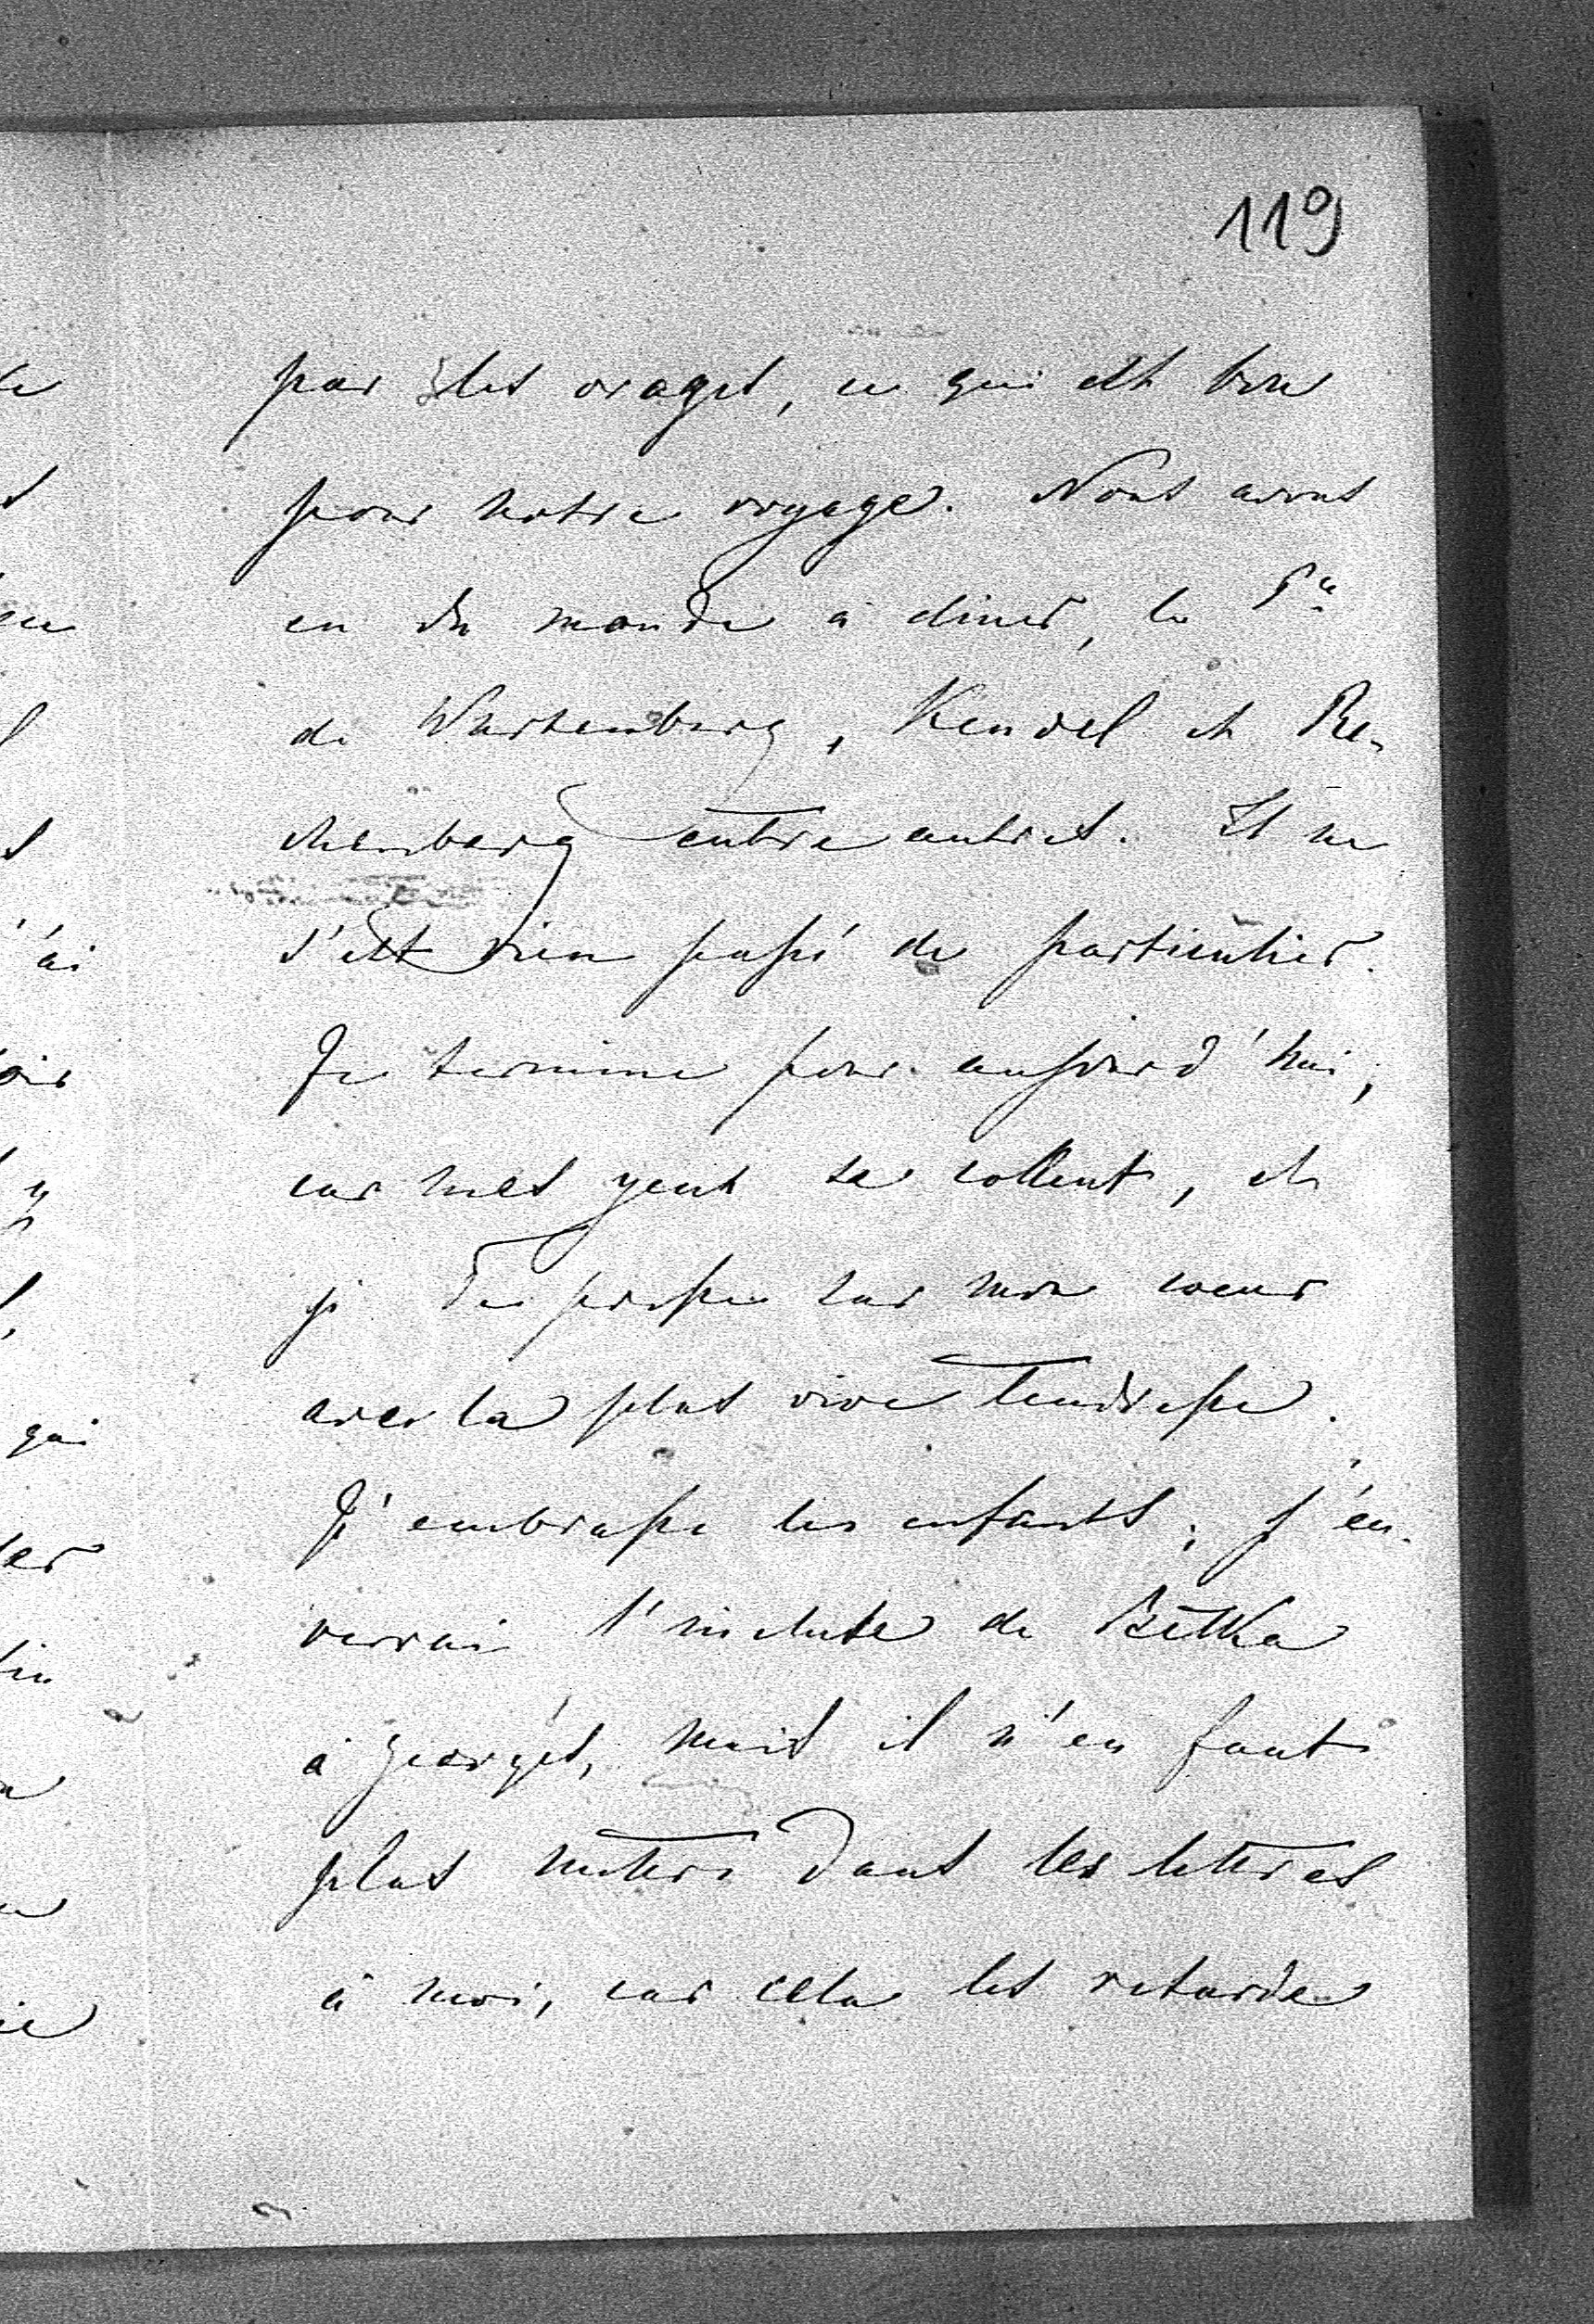 119
par les orages, ce qui est bon
pour notre voyage. Nous avons
eu du monde à diner, le Pce
de Wurtemberg, Keudel et Re-
chenberg entre autres. Il ne
s'est rien passé de particulier.
Je termine pour aujourd'hui,
car mes yeux se collent, et
je Te presse sur mon coeur
avec la plus vive tendresse.
J'embrasse les enfants; j'en-
verrai l'incluse de Betka
à Georges, mais il n'en faut
plus mettre dans les lettres
à moi, car cela les retarde